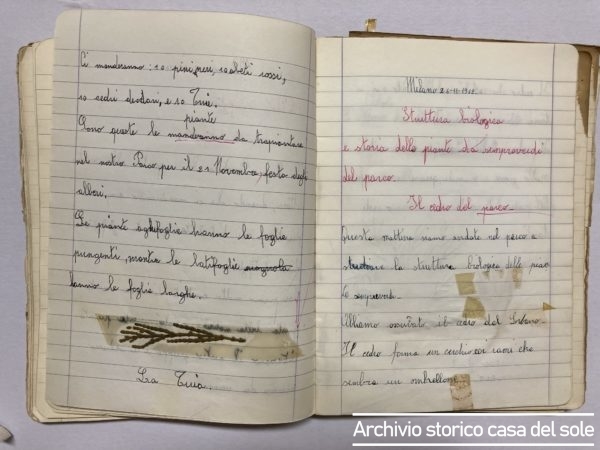 Ci manderanno: 10 pini neri, 10 abeti rossi,
10 cedri deodari, e 10 Tuie.
piante
Sono queste le manderanno da trapiantare
nel nostro Parco per il 21 Novembre, festa degli
alberi.
Le piante aghifoglie hanno le foglie
pungenti, mentre le latifoglie
hanno le foglie larghe.
La Tuia.
Milano
Struttura biologica
e storia delle piante da sempreverdi
del parco.
Il cedro del parco
Questa mattina siamo andate nel parco a
studiare la struttura biologica delle
Abbiamo osservato il cedro del Libano.
Il cedro forma un cerchio coi rami che
sembra un ombrellone.
Archivio storico casa del sole